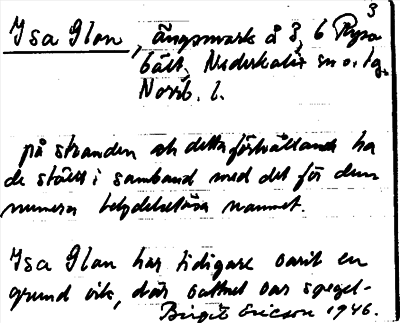 3
Isa Glan, ängsmark å 3, 6 Rysa
bält, Nederkalix sn o. tg.
Norrb. l.
på stranden och detta förhållande ha
de ställt i samband med det för dem
numera betydelselösa namnet.
Isa Glan har tidigare varit en
grund vik, där vattnet var spegel-
Birgit Ericson 1946.